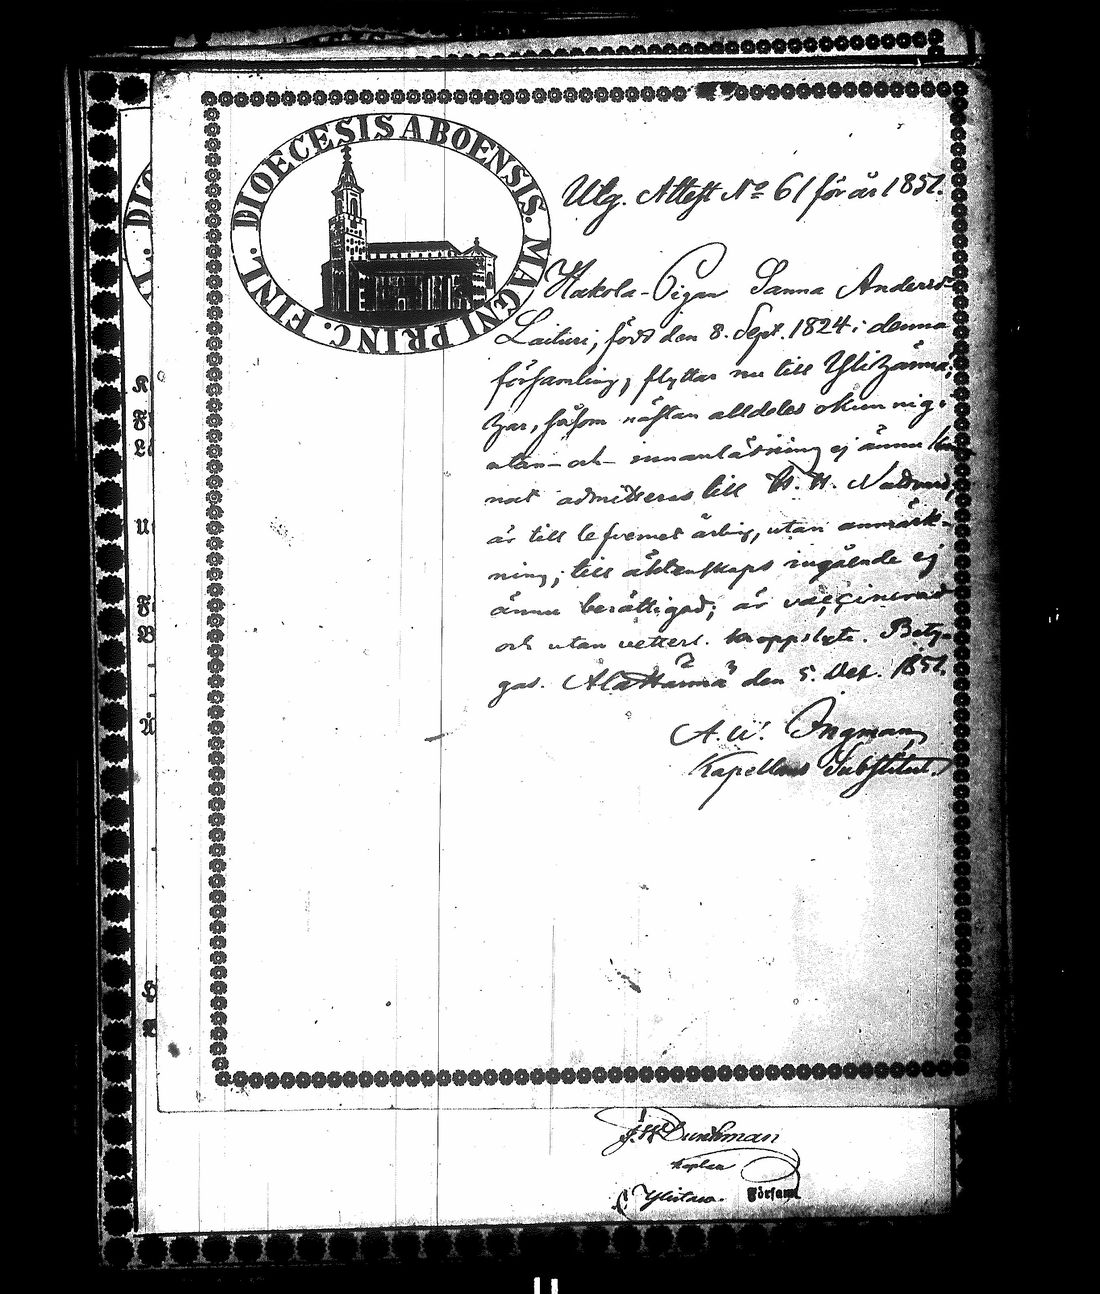 DIOECESIS ABOENSIS. MAGNI PRINC. FINL.
Utg. Attest No 61 för år 1851.
Hakola-Pigan Sanna Andersd.
Laituri, född den 8. Sept. 1824 i denna
församling, flyttar nu till Ylihärmä;
har, såsom nästan alldeles okunnig i
utan- och innanläsning ej ännu kun-
nat admitteras till H. H. Nattvard,
är till lefvernet ärlig, utan anmärk-
ning; till äktenskaps ingående ej
ännu berättigad; är vaccinerad
och utan vetterl. kroppslyte. Bety-
gas. Alahärmä den 5. Dec. 1851.
A. W. Ingman,
Kapellans Substitut.
Kaplan
Ylistaro. Församl.